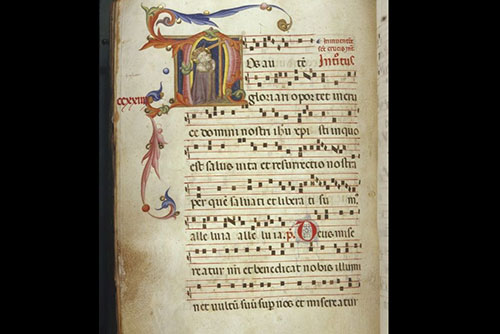 In inuentione
sce crucis
Introitus
Nos autē
ccxxiii
gloriari oportet in cru
ce domini nostri ihu xpi sti in quo
est salus uita et resurrectio nostra
per quē saluati et libera ti su mꝰ
alle luia alle lu ia. ps. Deus mise
reatur nrī et benedicat nobis illumi
net uultū suū sup nos et misereatur